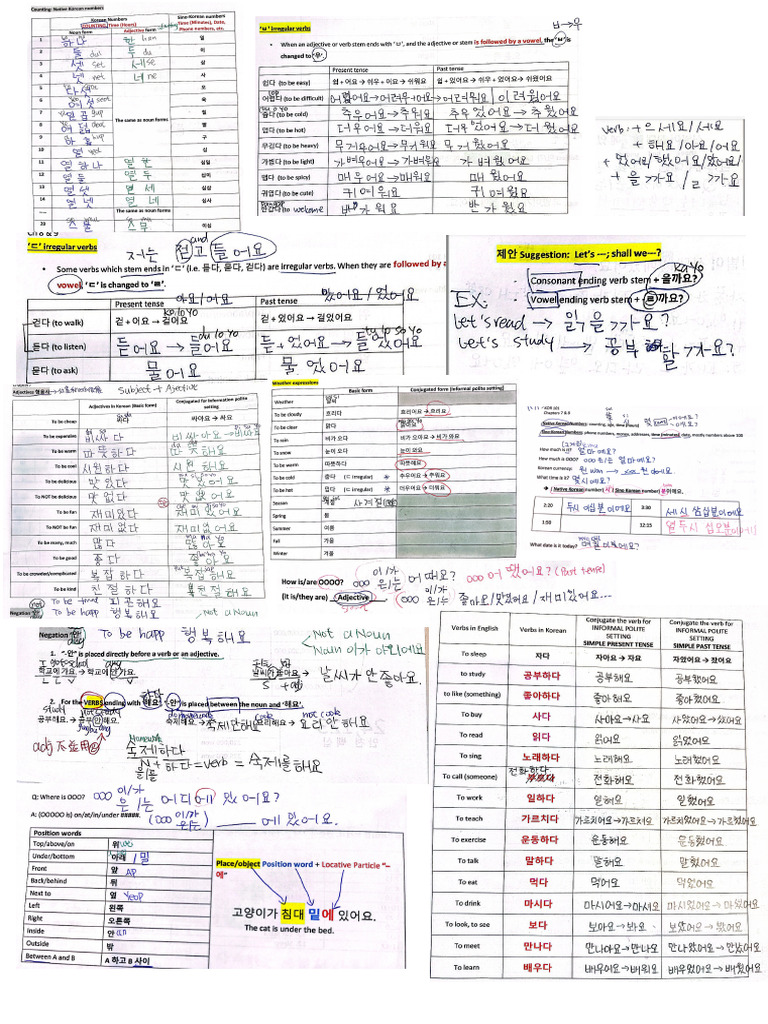 Counting: Native Korean numbers
Korean Numbers
COUNTING, Time (Hours)
Sino-Korean numbers
Time (Minutes), Date,
Phone numbers, etc.
Noun form
Adjective form
1 하나 한 일
2 둘 두 이
3 셋 세 삼
4 넷 네 사
5 다섯 오
6 여섯 육
7 일곱 칠
The same as noun forms
8 여덟 팔
9 아홉 구
10 열 십
11 열 하나 열 한 십일
12 열 둘 열 두 십이
13 열 셋 열 세 십삼
14 열 넷 열 네 십사
The same as noun forms
20 스물 스무 이십
'ㅂ' irregular verbs
ㅂ→우
When an adjective or verb stem ends with 'ㅂ', and the adjective or stem is followed by a vowel, the 'ㅂ' is
changed to '우'.
Present tense Past tense
쉽다 (to be easy) 쉽 + 어요 → 쉬우 + 어요 → 쉬워요 쉽 + 었어요 → 쉬우 + 었어요 → 쉬웠어요
어렵다 (to be difficult) 어렵어요→어려우+어요→어려워요 어려웠어요
춥다 (to be cold) 추우어요→추워요 추우었어요→추웠어요
덥다 (to be hot) 더우어요→더워요 더우었어요→더웠어요
무겁다 (to be heavy) 무거우어요→무거워요 무거웠어요
가볍다 (to be light) 가벼우어요→가벼워요 가벼웠어요
맵다 (to be spicy) 매우어요→매워요 매웠어요
귀엽다 (to be cute) 귀여워요 귀여웠어요
반갑다 (to be welcome) 반가워요 반가웠어요
verb: + 으세요/세요
+ 해요/아요/어요
+ 았어요/했어요/었어요/
+ 을까요/ㄹ까요
'ㄷ' irregular verbs
저는 걷고 들어요
and
Some verbs which stem ends in 'ㄷ' (i.e. 듣다, 묻다, 걷다) are irregular verbs. When they are followed by a
vowel, 'ㄷ' is changed to 'ㄹ'.
아요/어요 았어요/었어요
Present tense Past tense
걷다 (to walk) 걷 + 어요 → 걸어요 걷 + 었어요 → 걸었어요
듣다 (to listen) 듣어요→들어요 듣+었어요→들었어요
묻다 (to ask) 물어요 물었어요
제안 Suggestion: Let's ---; shall we---?
Consonant ending verb stem + 을까요?
Vowel ending verb stem + ㄹ까요?
EX:
Let's read → 읽을까요?
Let's study → 공부할까요?
Subject + Ajective
Adjectives in Korean (Basic form) Conjugated for Informational polite
setting
To be cheap 싸다 싸아요 → 싸요
To be expensive 비싸다 비싸아요→비싸요
To be warm 따뜻하다 따뜻해요
To be cool 시원하다 시원해요
To be delicious 맛있다 맛있어요
To be NOT delicious 맛없다 맛없어요
To be fun 재미있다 재미있어요
To be NOT fun 재미없다 재미없어요
To be many, much 많다 많아요
To be good 좋다 좋아요
To be crowded/complicated 복잡하다 복잡해요
To be kind 친절하다 친절해요
To be tired 피곤해요
To be happ 행복해요
Not a Noun
Weather expressions
Basic form Conjugated form (informal polite setting)
Weather 날씨
To be cloudy 흐리다 흐리어요 → 흐려요
To be clear 맑다 맑아요
To rain 비가 오다 비가 오아요 → 비가 와요
To snow 눈이 오다 눈이 와요
To be warm 따뜻하다 따뜻해요
To be cold 춥다 (ㅂ irregular) 추우어요 → 추워요
To be hot 덥다 (ㅂ irregular) 더우어요 → 더워요
Season 계절 사계절
Spring 봄
Summer 여름
Fall 가을
Winter 겨울
Chapters 7 & 8
Native Korean numbers: counting, age, time (hours)
Sino-Korean numbers: phone numbers, money, addresses, time (minutes), date, mostly numbers above 100
How much is it? 얼마예요?
How much is OOO? 000 은/는 얼마예요?
Korean currency: 원 won
What time is it? 몇시예요?
( Native Korean number)시 (Sino-Korean number)분이에요.
2:20 두시 이십분이에요 3:30 세시 삼십분이에요
1:50 12:15 열두시 십오분이에요
What date is it today?
How is/are OOOO? 000 이/가 은/는 어때요? 000 어땠어요? (Past tense)
(It is/they are) Adjective 000 이/가 은/는 좋아요/맛있어요/재미있어요...
Negation 안
To be happ 행복해요
Not a Noun
Noun 이/가 아니에요
1. "-안" is placed directly before a verb or an adjective.
학교에 가요. → 학교에 안 가요. 날씨 안 좋아요. → 날씨가 안 좋아요.
2. For the VERBS ending with '해요', '-안' is placed between the noun and '해요'.
study not study do homework cook not cook
공부해요. → 공부 안 해요. 숙제해요. → 숙제 안 해요 요리 안 해요
adj 不适用
Homework
숙제하다
N + 하다 = verb = 숙제를 해요
을/를
Q: Where is OOO? 000 이/가 은/는 어디에 있어요?
A: (OOOOO is) on/at/in/under #####. (000 이/가 은/는) ____ 에 있어요.
Position words
Top/above/on 위
Under/bottom 아래/밑
Front 앞 AP
Back/behind 뒤
Next to 옆 yeop
Left 왼쪽
Right 오른쪽
Inside 안 an
Outside 밖
Between A and B A 하고 B 사이
Place/object Position word + Locative Particle "–
에"
고양이가 침대 밑에 있어요.
The cat is under the bed.
Verbs in English Verbs in Korean Conjugate the verb for
INFORMAL POLITE
SETTING
SIMPLE PRESENT TENSE
Conjugate the verb for
INFORMAL POLITE
SETTING
SIMPLE PAST TENSE
To sleep 자다 자아요 → 자요 자았어요 → 잤어요
to study 공부하다 공부해요 공부했어요
to like (something) 좋아하다 좋아해요 좋아했어요
To buy 사다 사아요→사요 사았어요→샀어요
To read 읽다 읽어요 읽었어요
To sing 노래하다 노래해요 노래했어요
To call (someone) 전화하다 전화해요 전화했어요
To work 일하다 일해요 일했어요
To teach 가르치다 가르치어요→가르쳐요 가르치었어요→가르쳤어요
To exercise 운동하다 운동해요 운동했어요
To talk 말하다 말해요 말했어요
To eat 먹다 먹어요 먹었어요
To drink 마시다 마시어요→마셔요 마시었어요→마셨어요
To look, to see 보다 보아요→봐요 보았어요→봤어요
To meet 만나다 만나아요→만나요 만나았어요→만났어요
To learn 배우다 배우어요→배워요 배우었어요→배웠어요